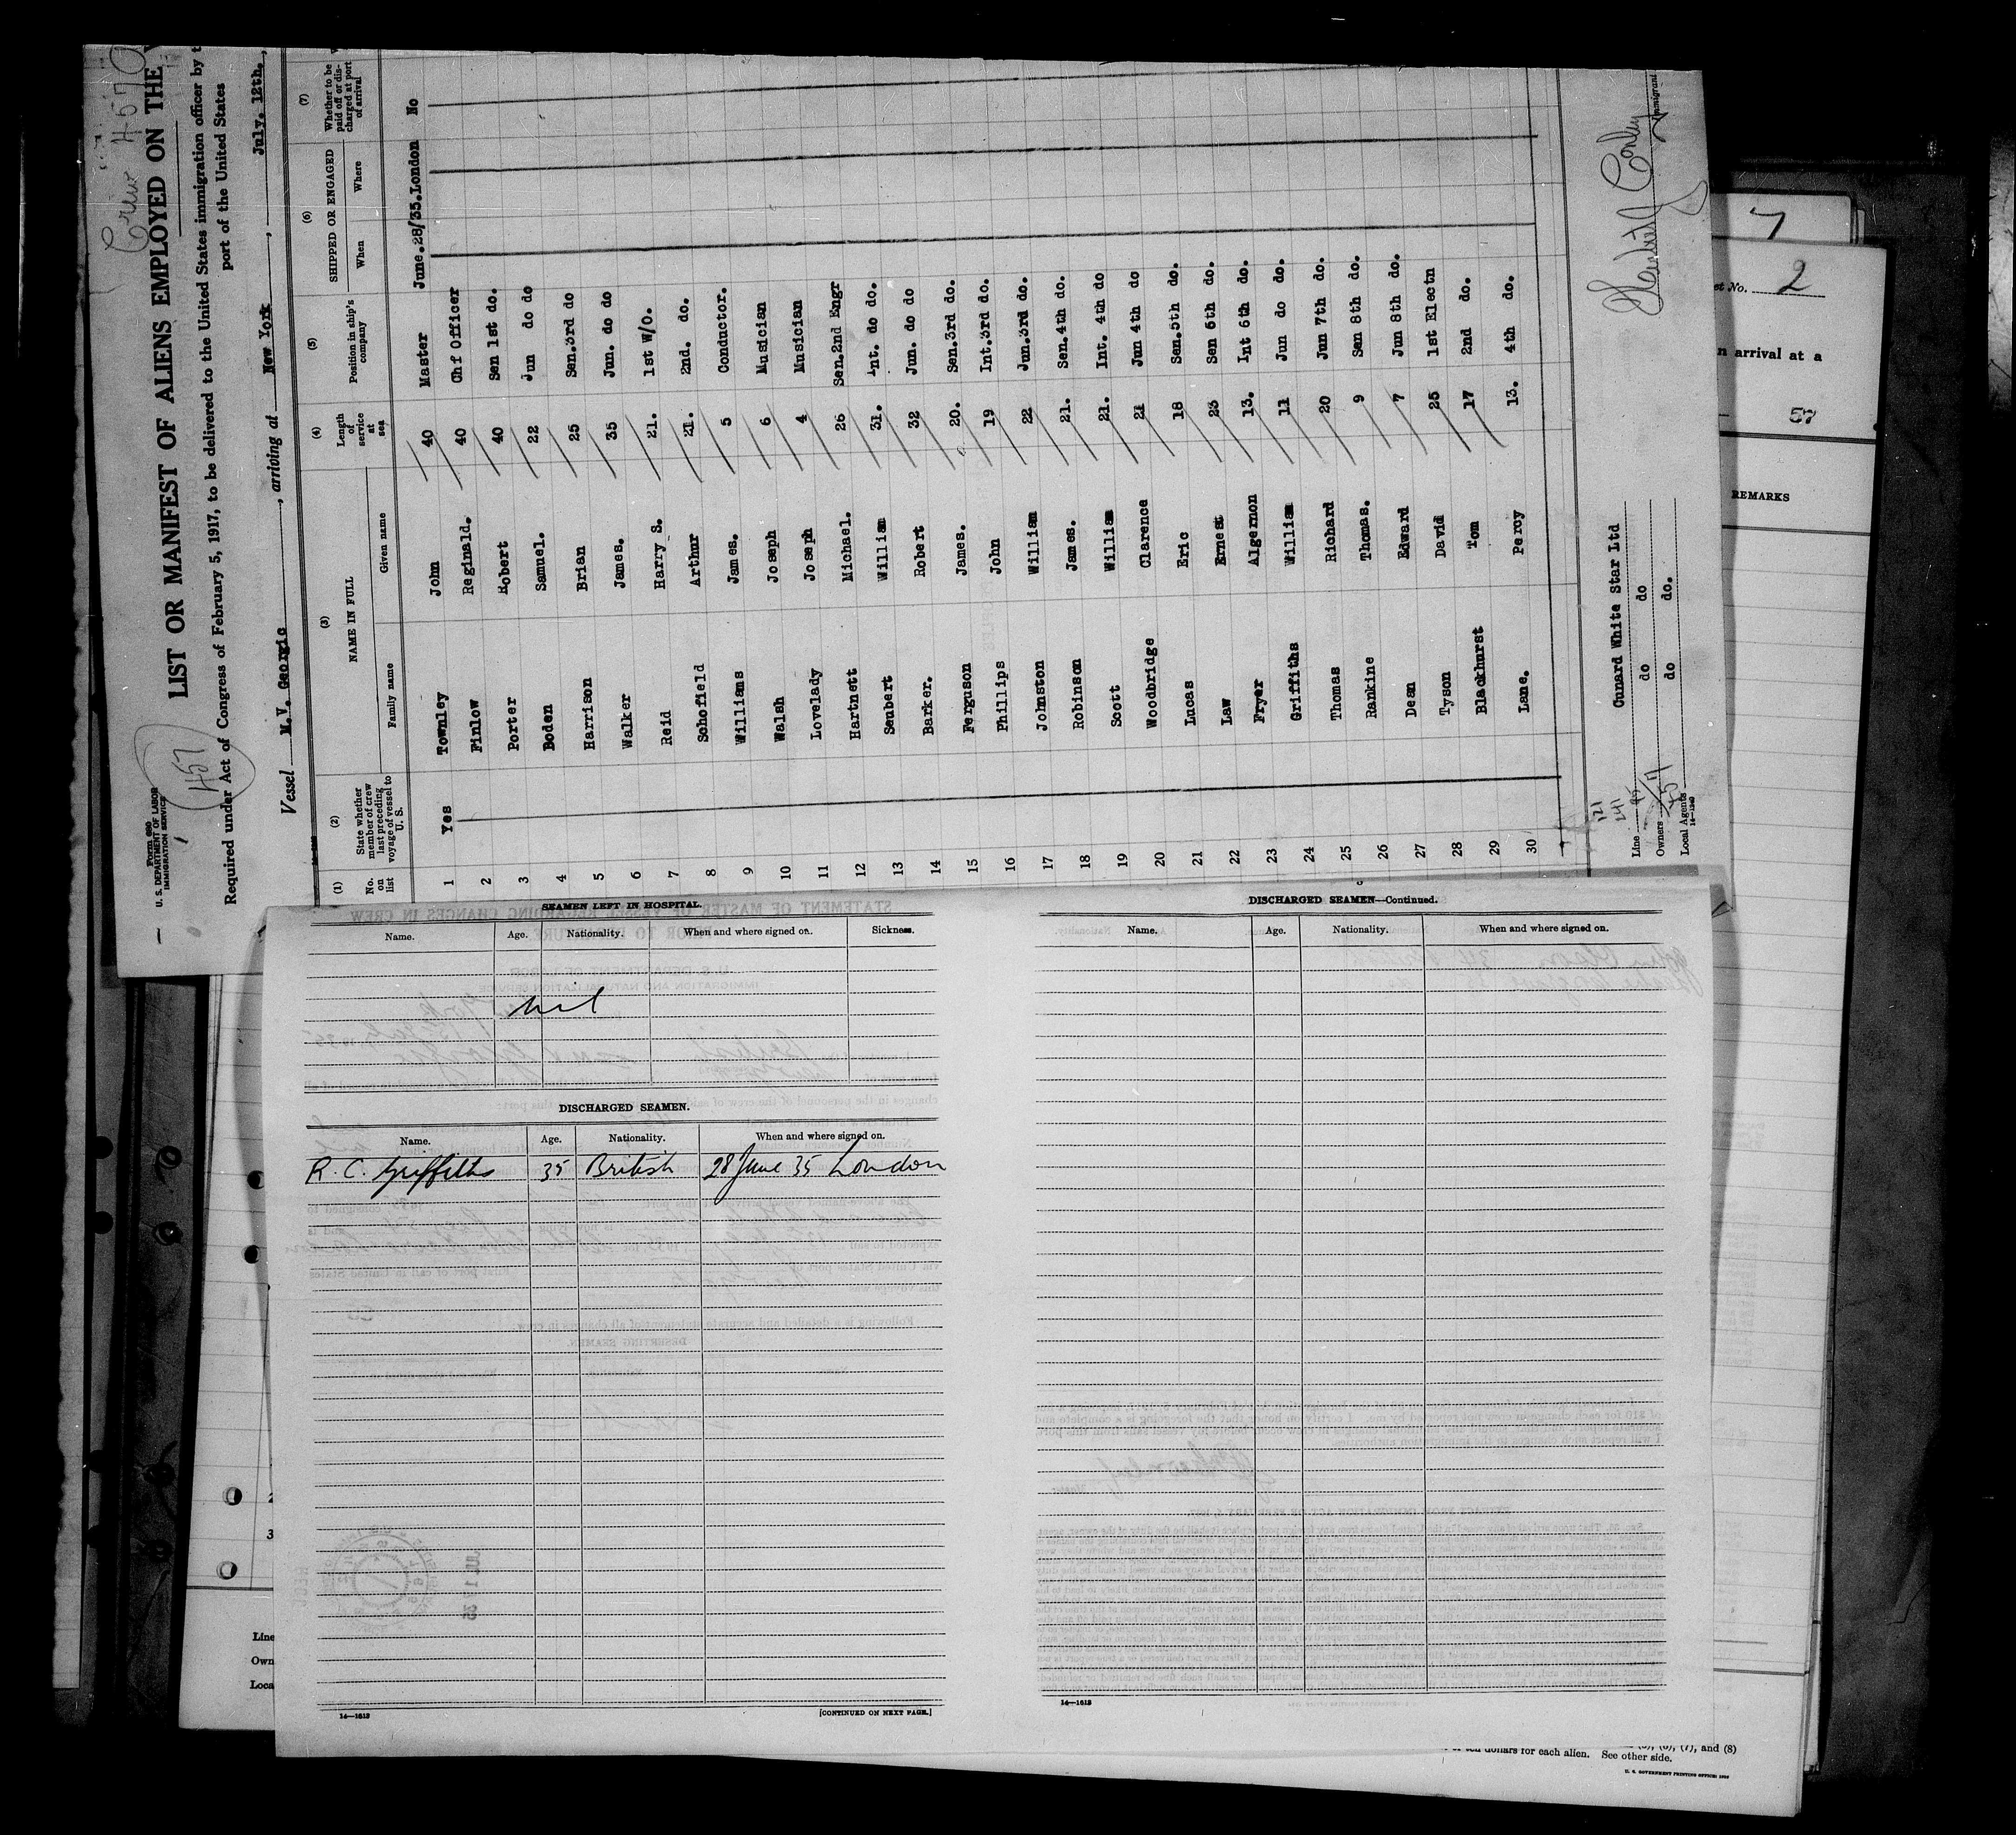 Crew 457
Form 680
U. S. DEPARTMENT OF LABOR
IMMIGRATION SERVICE
457
LIST OR MANIFEST OF ALIENS EMPLOYED ON THE
Required under Act of Congress of February 5, 1917, to be delivered to the United States immigration officer by
port of the United States
Vessel M.V. Georgic, arriving at New York, July. 12th.,
(1) (2) (3) (4) (5) (6) (7)
No. on list
State whether member of crew last preceding voyage of vessel to U. S.
NAME IN FULL
Family name Given name
Length of service at sea
Position in ship's company
SHIPPED OR ENGAGED
When Where
Whether to be paid off or discharged at port of arrival
1 Yes Townley John 40 Master June.28/35.London No
2 Finlow Reginald. 40 Chf Officer
3 Porter Robert 40 Sen 1st do.
4 Boden Samuel. 22 Jun do do
5 Harrison Brian 25 Sen.3rd do
6 Walker James. 35 Jun. do do
7 Reid Harry S. 21. 1st W/O.
8 Schofield Arthur 21. 2nd. do.
9 Williams James. 5 Conductor.
10 Walsh Joseph 6 Musician
11 Lovelady Joseph 4 Musician
12 Hartnett Michael. 26 Sen.2nd Engr
13 Seubert William 31. Int. do do.
14 Barker. Robert 32 Jun. do do
15 Ferguson James. 20. Sen.3rd do.
16 Phillips John 19 Int.3rd do.
17 Johnston William 22 Jun.3rd do.
18 Robinson James. 21. Sen.4th do.
19 Scott William 21. Int. 4th do
20 Woodbridge Clarence 21 Jun 4th do
21 Lucas Eric 18 Sen.5th do.
22 Law Ernest 23 Sen 6th do.
23 Fryer Algernon 13. Int 6th do.
24 Griffiths William 11 Jun do do.
25 Thomas Richard 20 Jun 7th do.
26 Rankine Thomas. 9 Sen 8th do.
27 Dean Edward 7 Jun 8th do.
28 Tyson David 25 1st Electn
29 Blackhurst Tom 17 2nd do.
30 Lane. Percy 13. 4th do.
121
241
95
457
Line Cunard White Star Ltd
Owners do do
Local Agents do do.
14—1240
Immigrant
7
et No. 2
n arrival at a
57
REMARKS
SEAMEN LEFT IN HOSPITAL.
Name. Age. Nationality. When and where signed on. Sickness.
nil
DISCHARGED SEAMEN.
Name. Age. Nationality. When and where signed on.
R. C. Griffiths 35 British 28 June 35 London
14—1613
[CONTINUED ON NEXT PAGE.]
DISCHARGED SEAMEN—Continued.
Name. Age. Nationality. When and where signed on.
14—1613
2
3
Line
Own
Loca
of ten dollars for each alien. See other side.
(5), (6), (7), and (8)
U. S. GOVERNMENT PRINTING OFFICE: